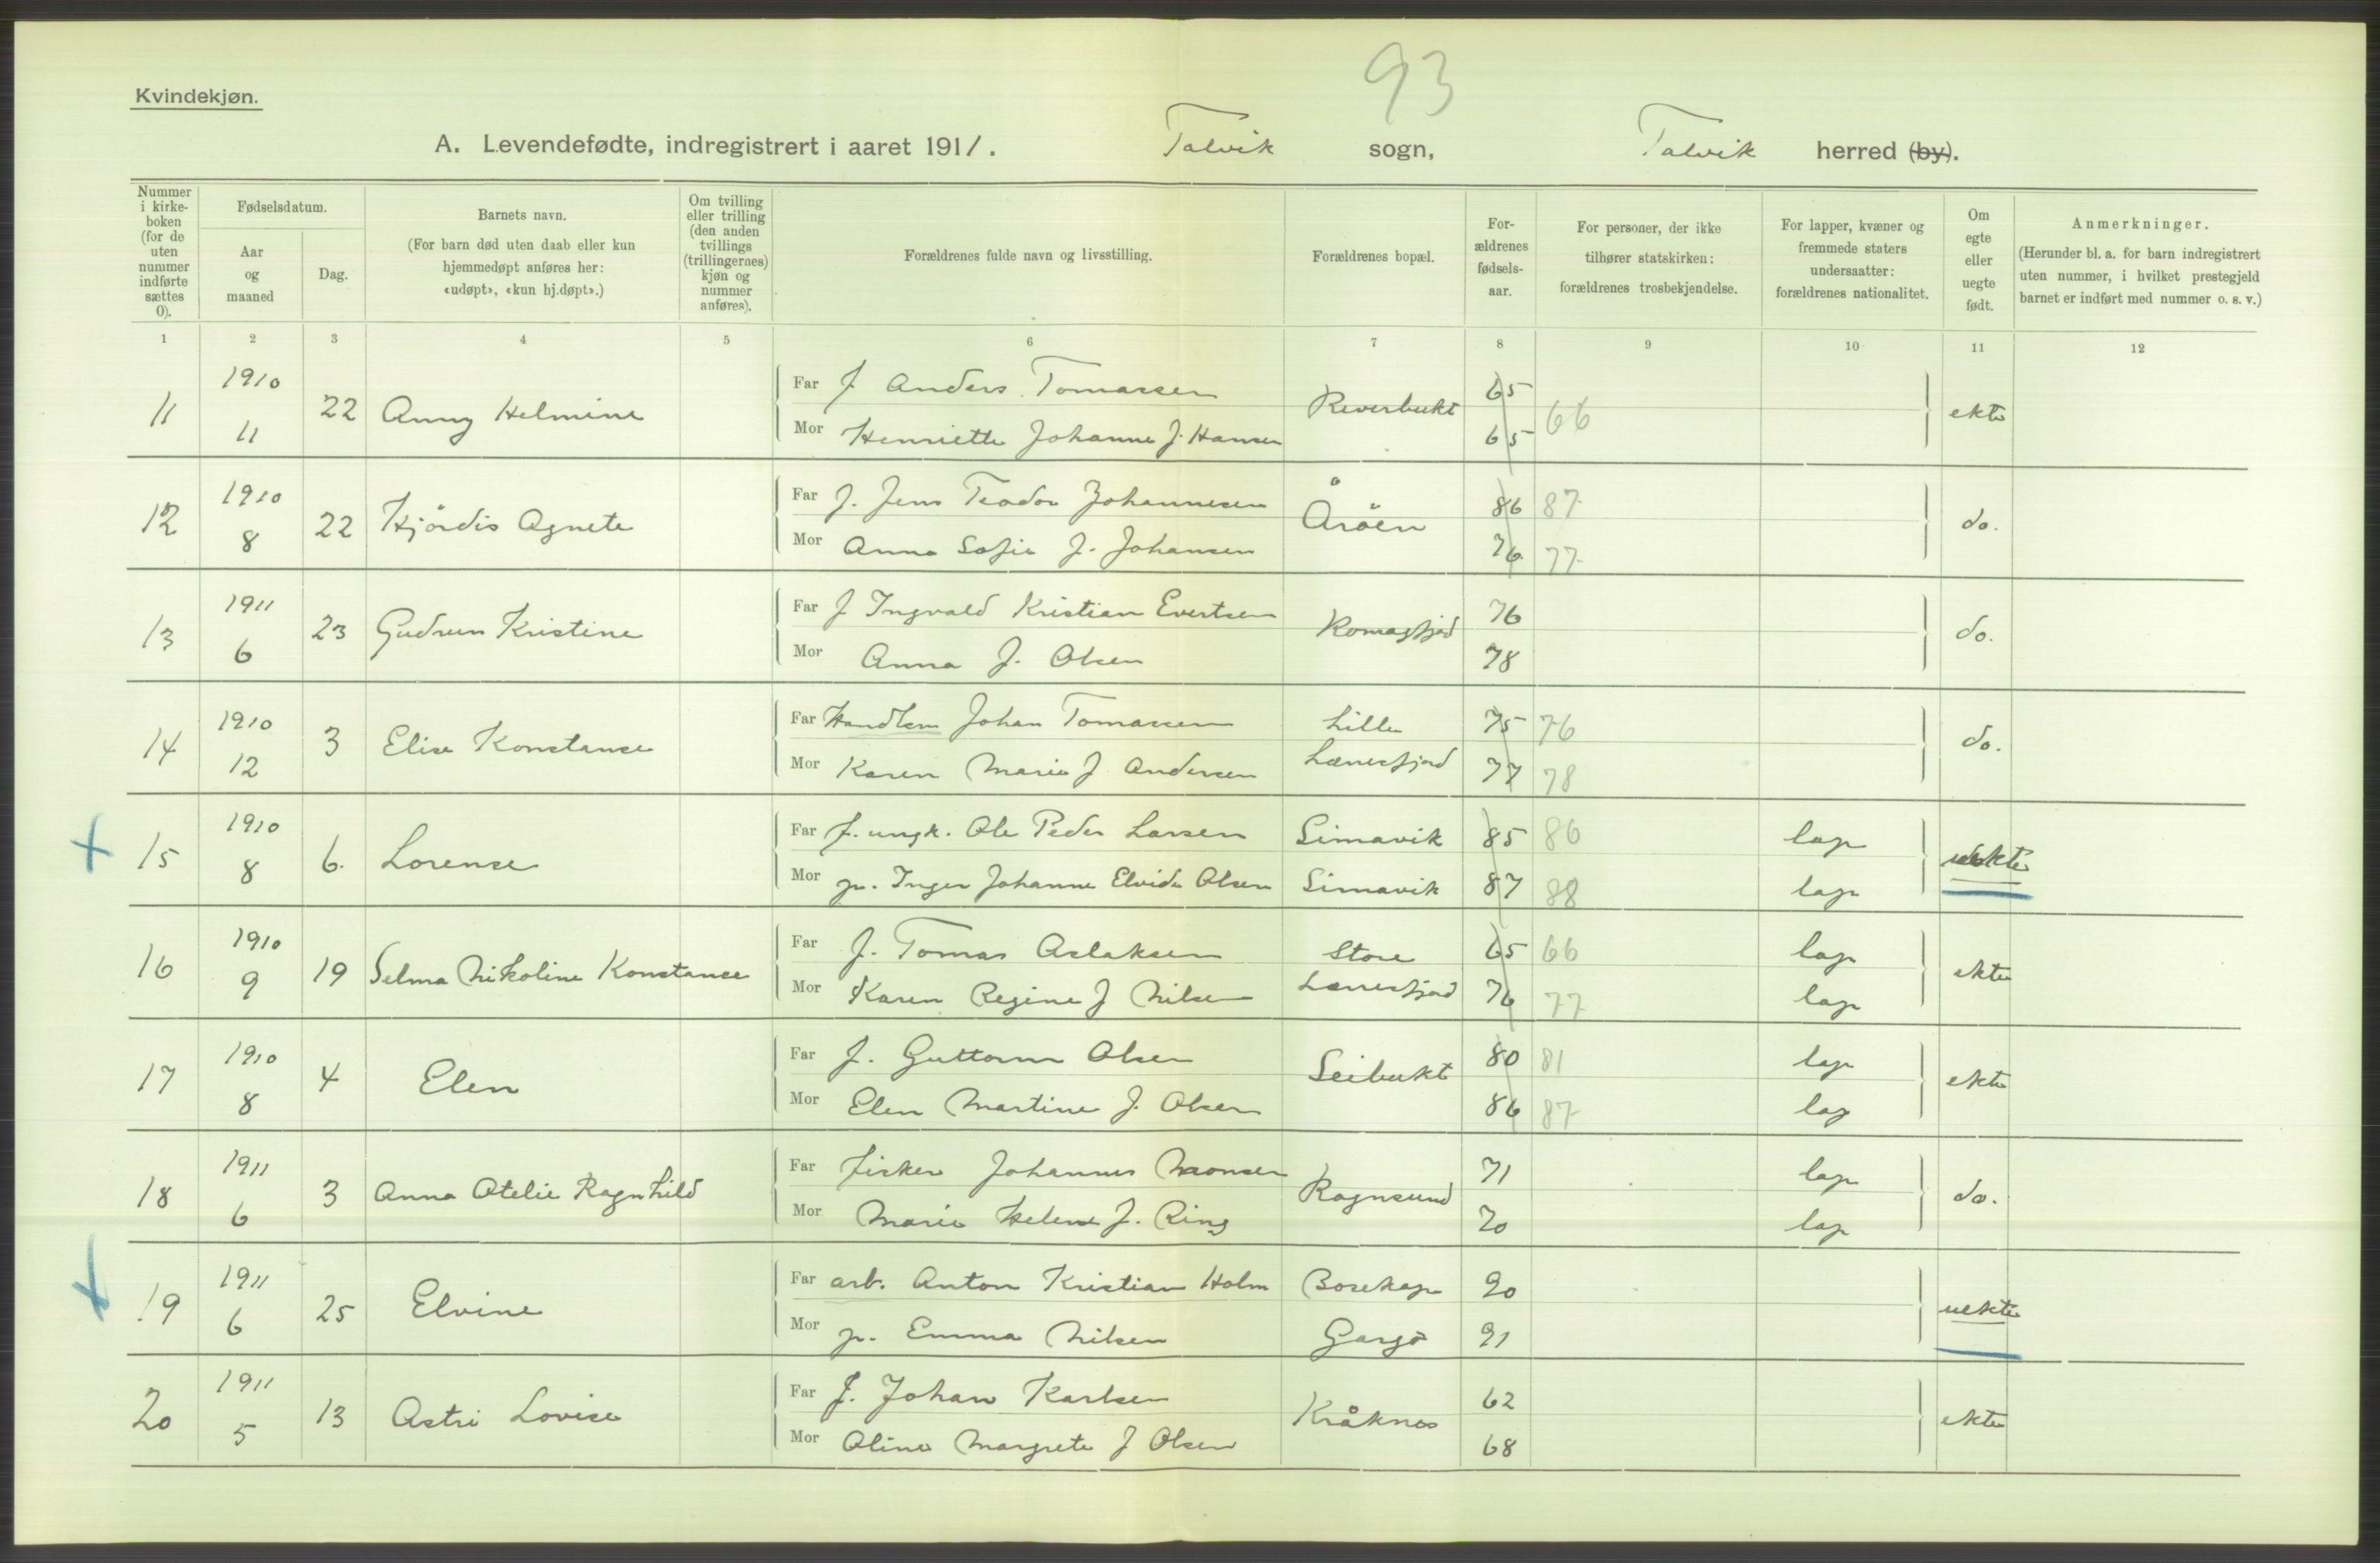 93
Kvindekjøn.
A. Levendefødte, indregistrert i aaret 1911. Talvik sogn, Talvik herred (by).
Nummer i kirkeboken (for de uten nummer indførte sættes 0).
Fødselsdatum.
Aar og maaned
Dag.
Barnets navn.
(For barn død uten daab eller kun hjemmedøpt anføres her: «udøpt», «kun hj.døpt».)
Om tvilling eller trilling (den anden tvillings (trillingernes) kjøn og nummer anføres).
Forældrenes fulde navn og livsstilling.
Forældrenes bopæl.
Forældrenes fødselsaar.
For personer, der ikke tilhører statskirken: forældrenes trosbekjendelse.
For lapper, kvæner og fremmede staters undersaatter: forældrenes nationalitet.
Om egte eller uegte født.
Anmerkninger.
(Herunder bl. a. for barn indregistrert uten nummer, i hvilket prestegjeld barnet er indført med nummer o. s. v.)
1 2 3 4 5 6 7 8 9 10 11 12
1910 Far f Anders Tomassen 65
11 22 Anny Helmine Reverbukt 66 ekte
11 Mor Henriette Johanne f. Hansen 65
1910 Far f. Jens Teodor Johannesen 86 87
12 22 Hjördis Agnete Åröen do.
8 Mor Anna Sofie f. Johansen 76 77
1911 Far f Ingvald Kristian Evertsen 76
13 23 Gudrun Kristine Komagfjord do.
6 Mor Anna f. Olsen 78
1910 Far Handlem Johan Tomassen Lille 75 76
14 3 Elise Konstanse do.
12 Mor Karen Marie f Andersen Lærresfjord 77 78
1910 Far f. ungk. Ole Peder Larsen Simavik 85 86 lap
15 6. Lorense uekte
8 Mor p. Inger Johanne Elvida Olsen Simavik 87 88 lap
1910 Far f. Tomas Aslaksen Store 65 66 lap
16 19 Selma Nikoline Konstanse ekte
9 Mor Karen Regine f Nilsen Lærresfjord 76 77 lap
1910 Far f. Guttorm Olsen 80 81 lap
17 4 Elen Seibukt ekte
8 Mor Elen Martine f. Olsen 86 87 lap
1911 Far fisker Johannes Monsen 71 lap
18 3 Anna Otelie Ragnhild Rognsund do.
6 Mor Marie Helene f. Ring 70 lap
1911 Far arb. Anton Kristian Holm Bosekop 90
19 25 Elvine uekte
6 Mor p. Emma Nilsen Gargo 91
1911 Far f. Johan Karlsen 62
20 13 Astri Lovise Kråknes ekte
5 Mor Oline Margrete f Olsen 68